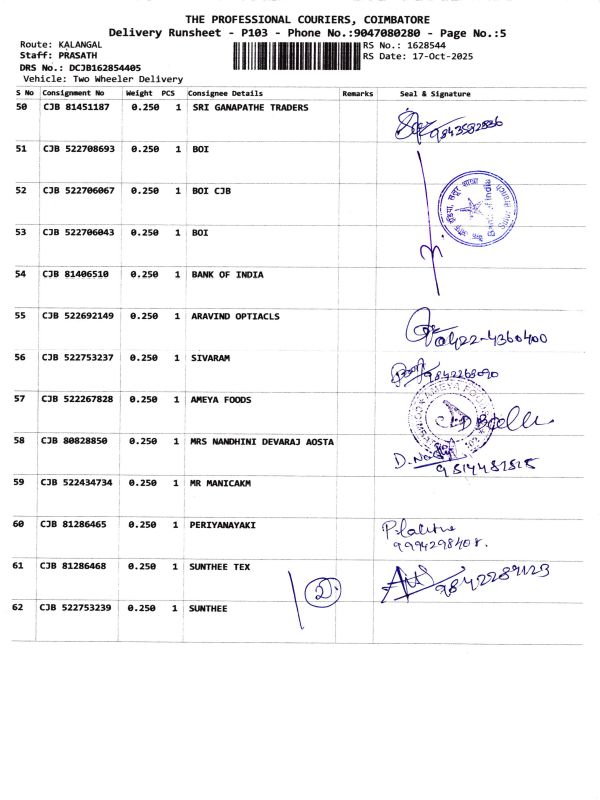 THE PROFESSIONAL COURIERS, COIMBATORE
Delivery Runsheet - P103 - Phone No.:9047080280 - Page No.:5
Route: KALANGAL RS No.: 1628544
Staff: PRASATH RS Date: 17-Oct-2025
DRS No.: DCJB162854405
Vehicle: Two Wheeler Delivery
S No Consignment No Weight PCS Consignee Details Remarks Seal & Signature
50 CJB 81451187 0.250 1 SRI GANAPATHE TRADERS
51 CJB 522708693 0.250 1 BOI
52 CJB 522706067 0.250 1 BOI CJB
Bank of India
53 CJB 522706043 0.250 1 BOI
54 CJB 81406510 0.250 1 BANK OF INDIA
55 CJB 522692149 0.250 1 ARAVIND OPTIACLS
0422-4360400
56 CJB 522753237 0.250 1 SIVARAM
9842268090
57 CJB 522267828 0.250 1 AMEYA FOODS
AMEYA FOODS
58 CJB 80828850 0.250 1 MRS NANDHINI DEVARAJ AOSTA
59 CJB 522434734 0.250 1 MR MANICAKM
60 CJB 81286465 0.250 1 PERIYANAYAKI
P. Lalitha
9994298408.
61 CJB 81286468 0.250 1 SUNTHEE TEX
9842289123
2
62 CJB 522753239 0.250 1 SUNTHEE